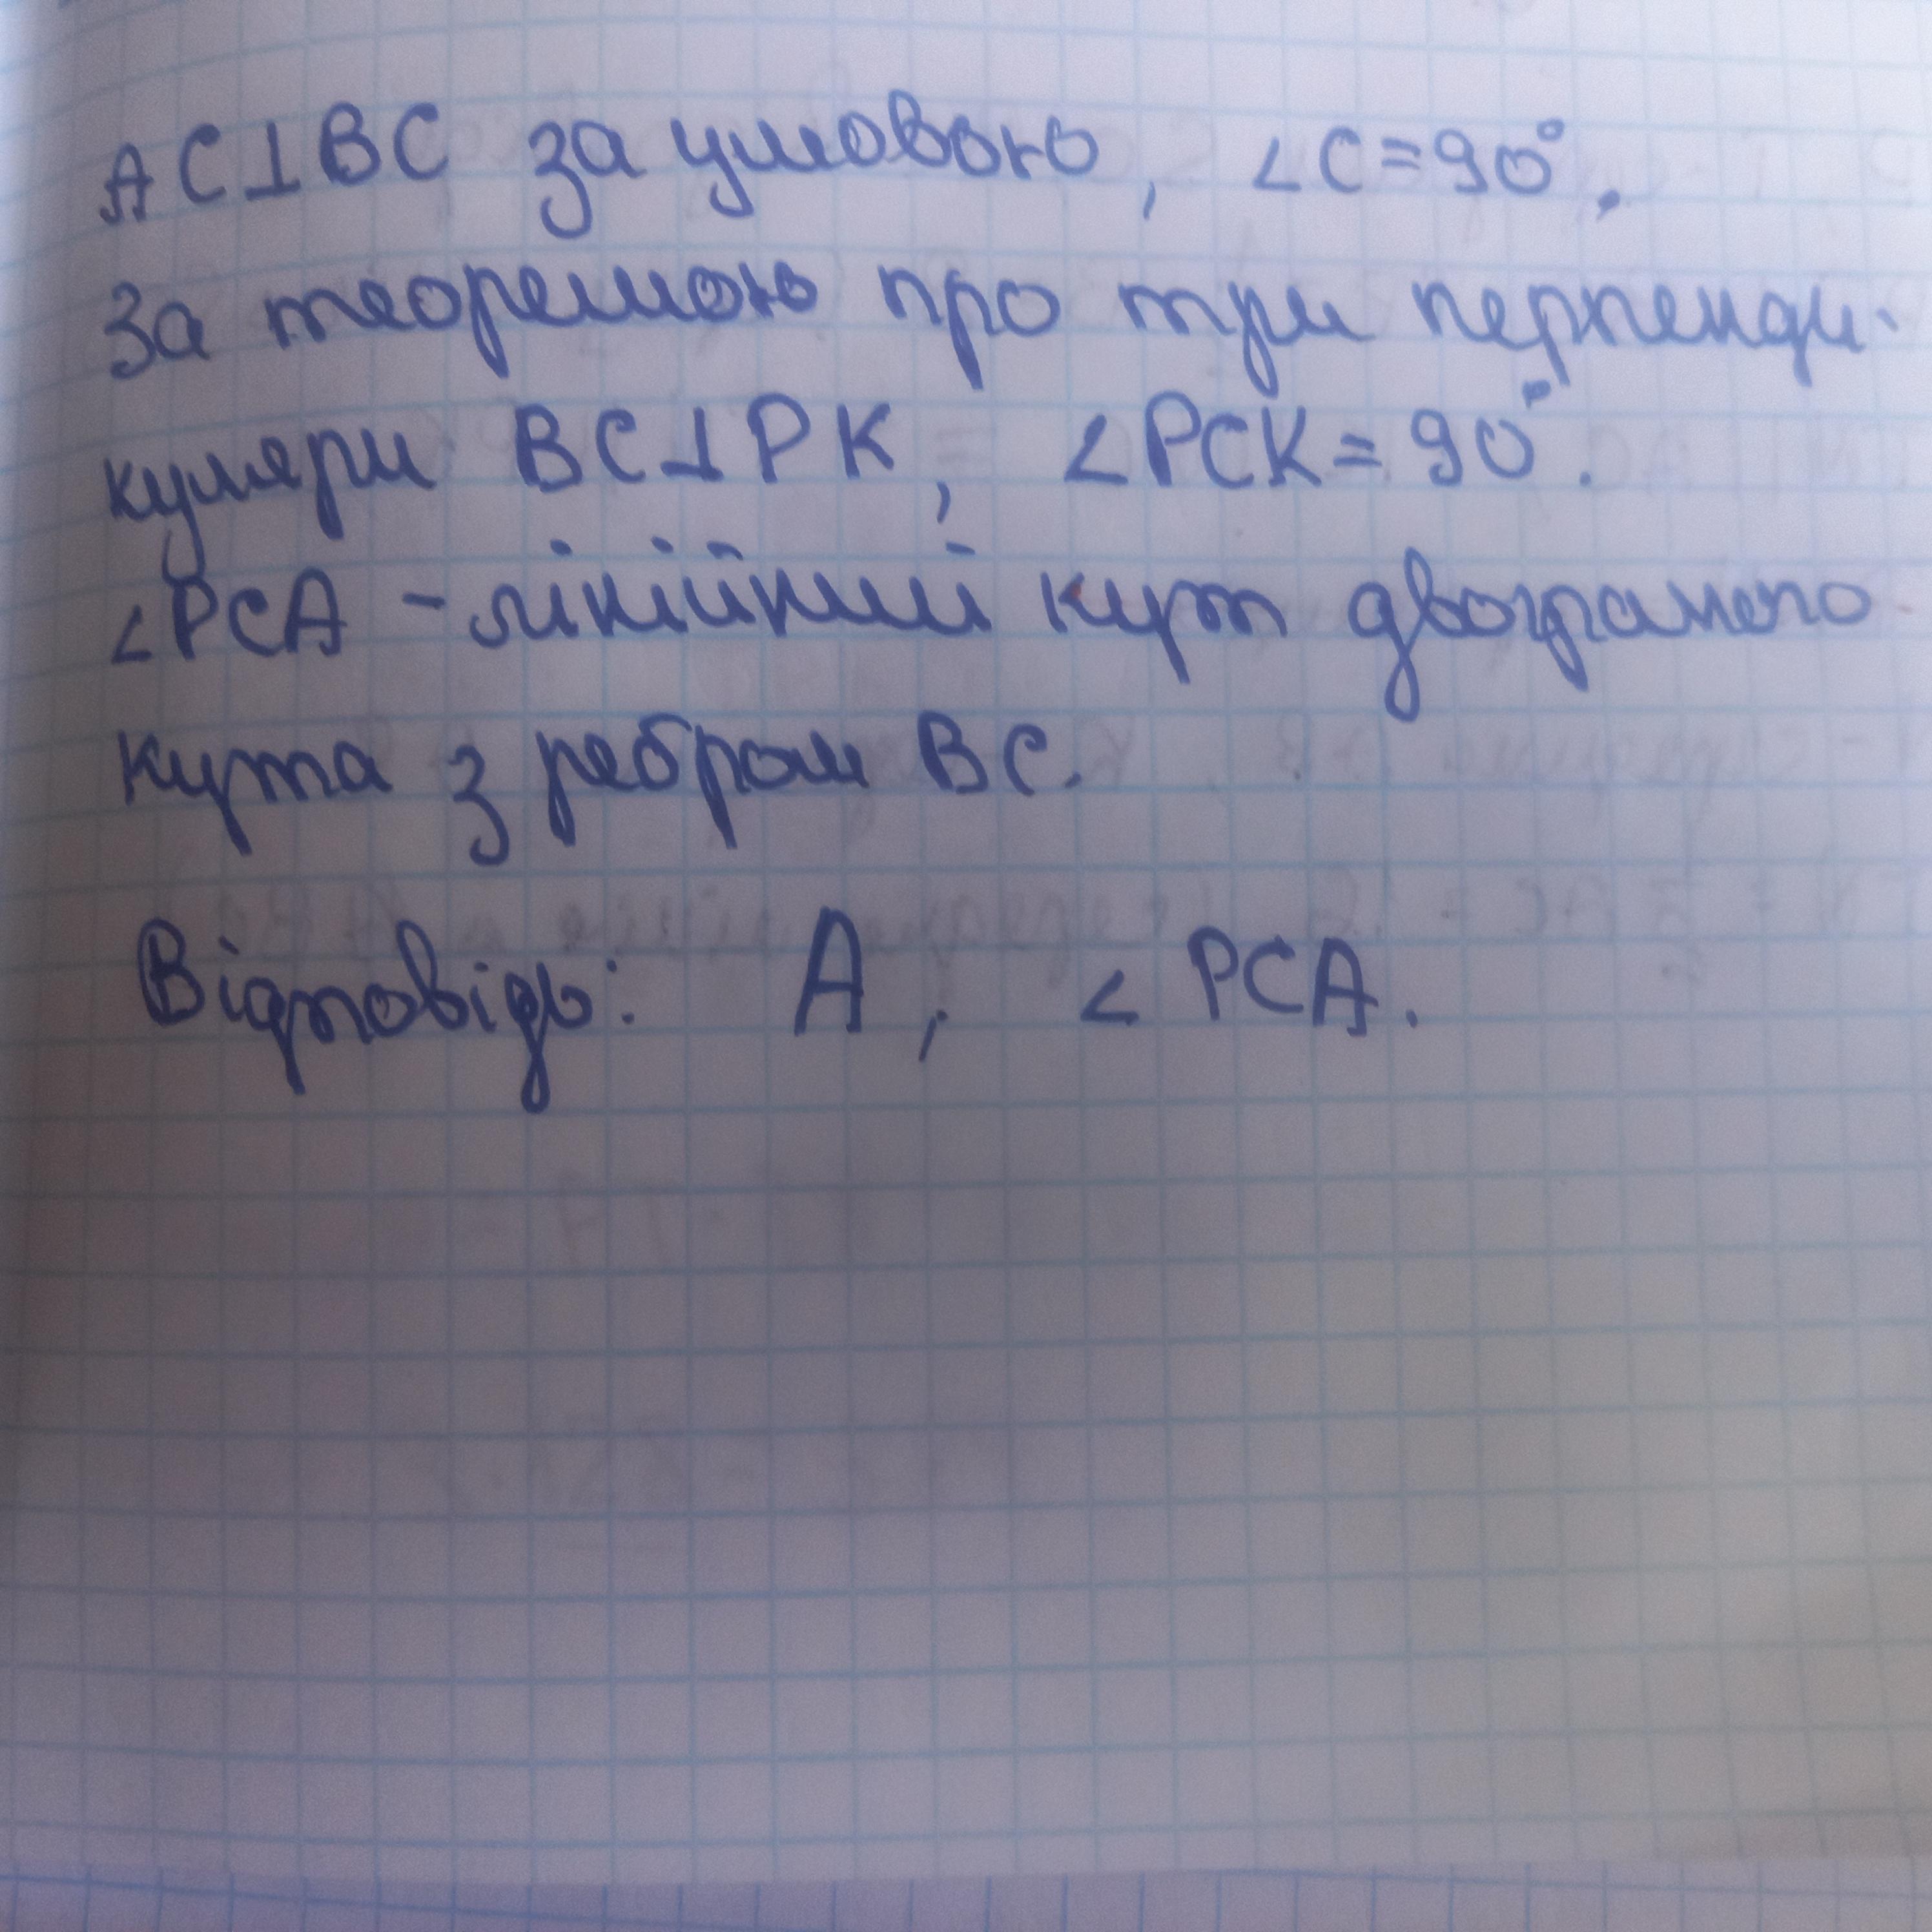 AC⊥BC за умовою, ∠C=90°.
За теоремою про три перпенди-
куляри BC⊥PK, ∠PCK=90°.
∠PCA - лінійний кут двогранного
кута з ребром BC.
Відповідь: А, ∠PCA.